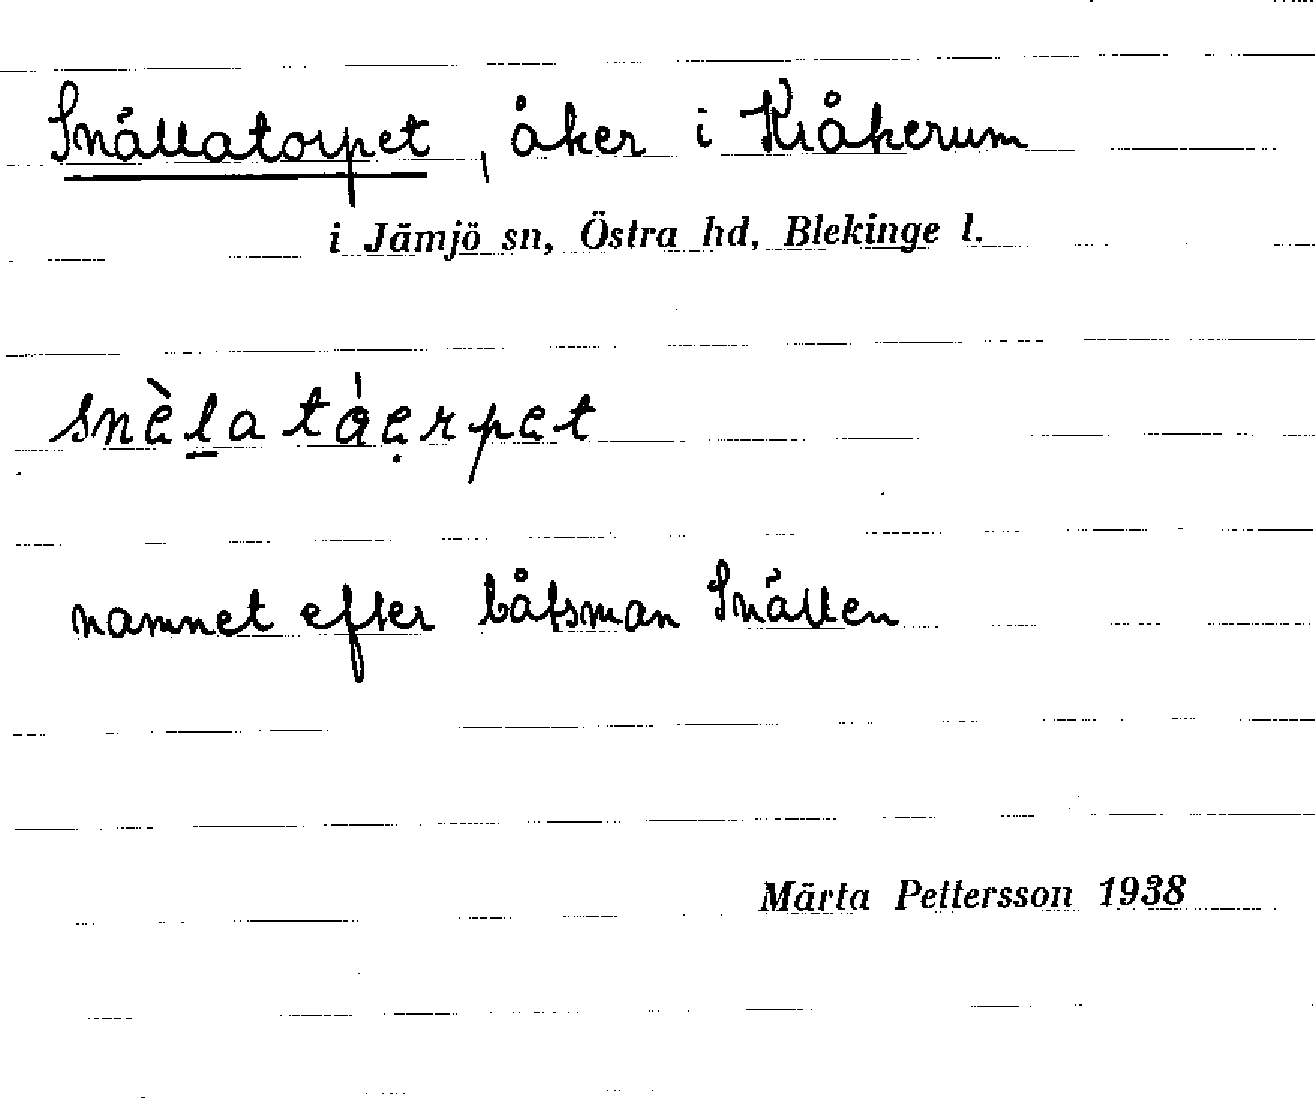 Snällatorpet, åker i Kråkerum
i Jämjö sn, Östra hd, Blekinge l.
snèḻa táẹrpet
namnet efter båtsman Snällen
Märta Pettersson 1938